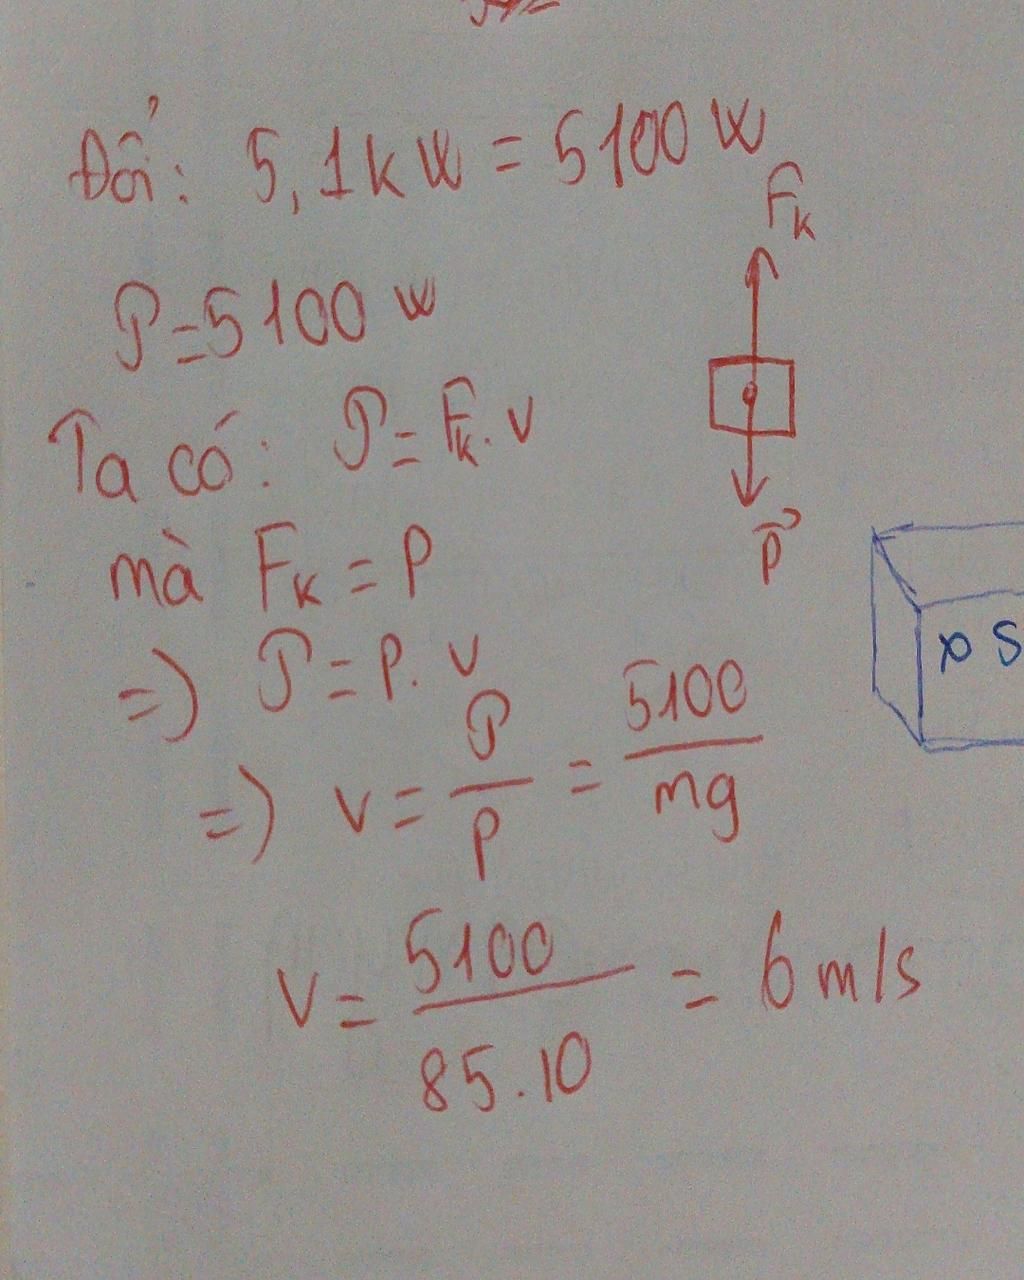 Đổi: 5,1kW = 5100 W
F_K
𝒫=5100 W
Ta có: 𝒫 = F_K.v
P⃗
mà F_K = P
x S
=) 𝒫 = P. v
=) v = 𝒫/P = 5100/mg
v = 5100/85.10 = 6 m/s